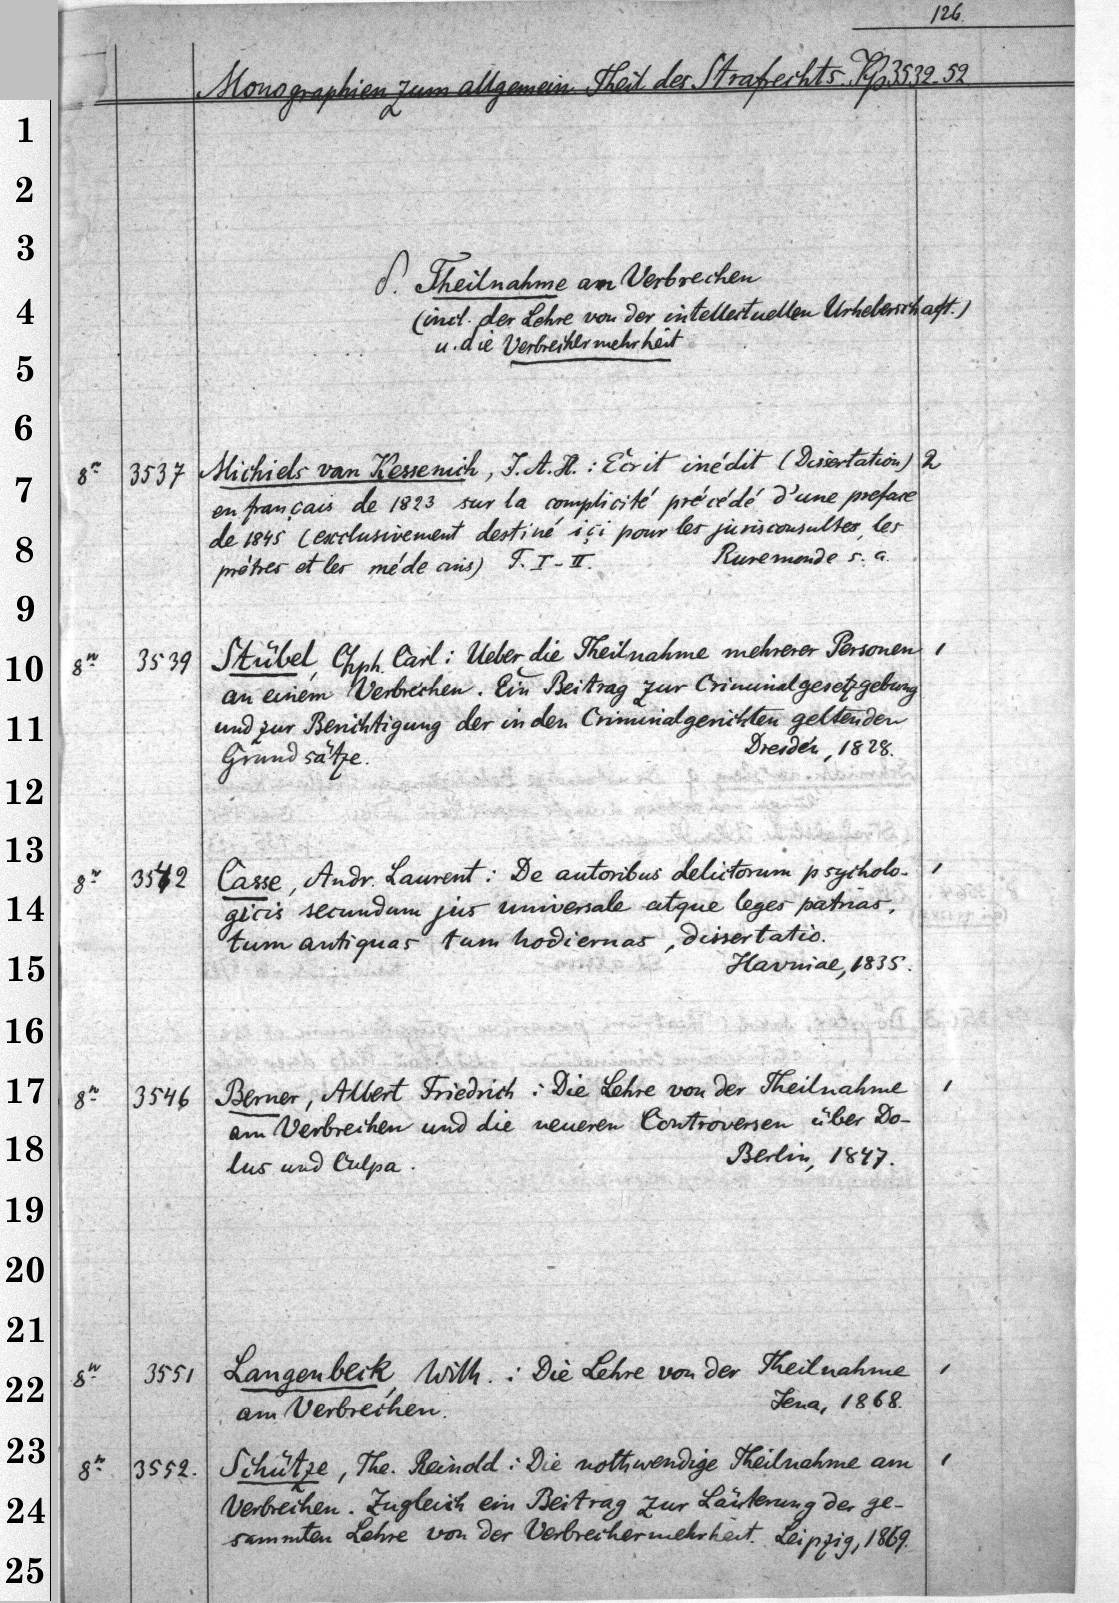 126.
Monographien zum allgemein. Theil des Strafrechts. 3532-52
1
2
3
δ. Theilnahme am Verbrechen
4
(incl. der Lehre von der intellectuellen Urheberschaft.)
u. die Verbrechermehrheit
5
6
8º 3537 Michiels van Kessenich, J. A. H. : Ecrit inédit (Dissertation) 2
7
en français de 1823 sur la complicité précédé d'une preface
de 1845 (exclusivement destiné içi pour les jurisconsultes, les
8
prêtres et les médecins) T. I-II. Ruremonde s. a.
9
8º 3539 Stübel, Chph. Carl : Ueber die Theilnahme mehrerer Personen 1
10
an einem Verbrechen. Ein Beitrag zur Criminalgesetzgebung
11
und zur Berichtigung der in den Criminalgerichten geltenden
Grundsätze. Dresden, 1828.
12
13
8º 3542 Casse, Andr. Laurent : De autoribus delictorum psycholo- 1
14
gicis secundum jus universale atque leges patrias,
tum antiquas tum hodiernas, dissertatio.
15
Havniae, 1835.
16
17
8º 3546 Berner, Albert Friedrich : Die Lehre von der Theilnahme 1
am Verbrechen und die neueren Controversen über Do-
18
lus und Culpa. Berlin, 1847.
19
20
21
8º 3551 Langenbeck, Wilh. : Die Lehre von der Theilnahme 1
22
am Verbrechen. Jena, 1868.
23
8º 3552. Schütze, The. Reinold : Die nothwendige Theilnahme am 1
24
Verbrechen. Zugleich ein Beitrag zur Läuterung der ge-
sammten Lehre von der Verbrechermehrheit. Leipzig, 1869.
25